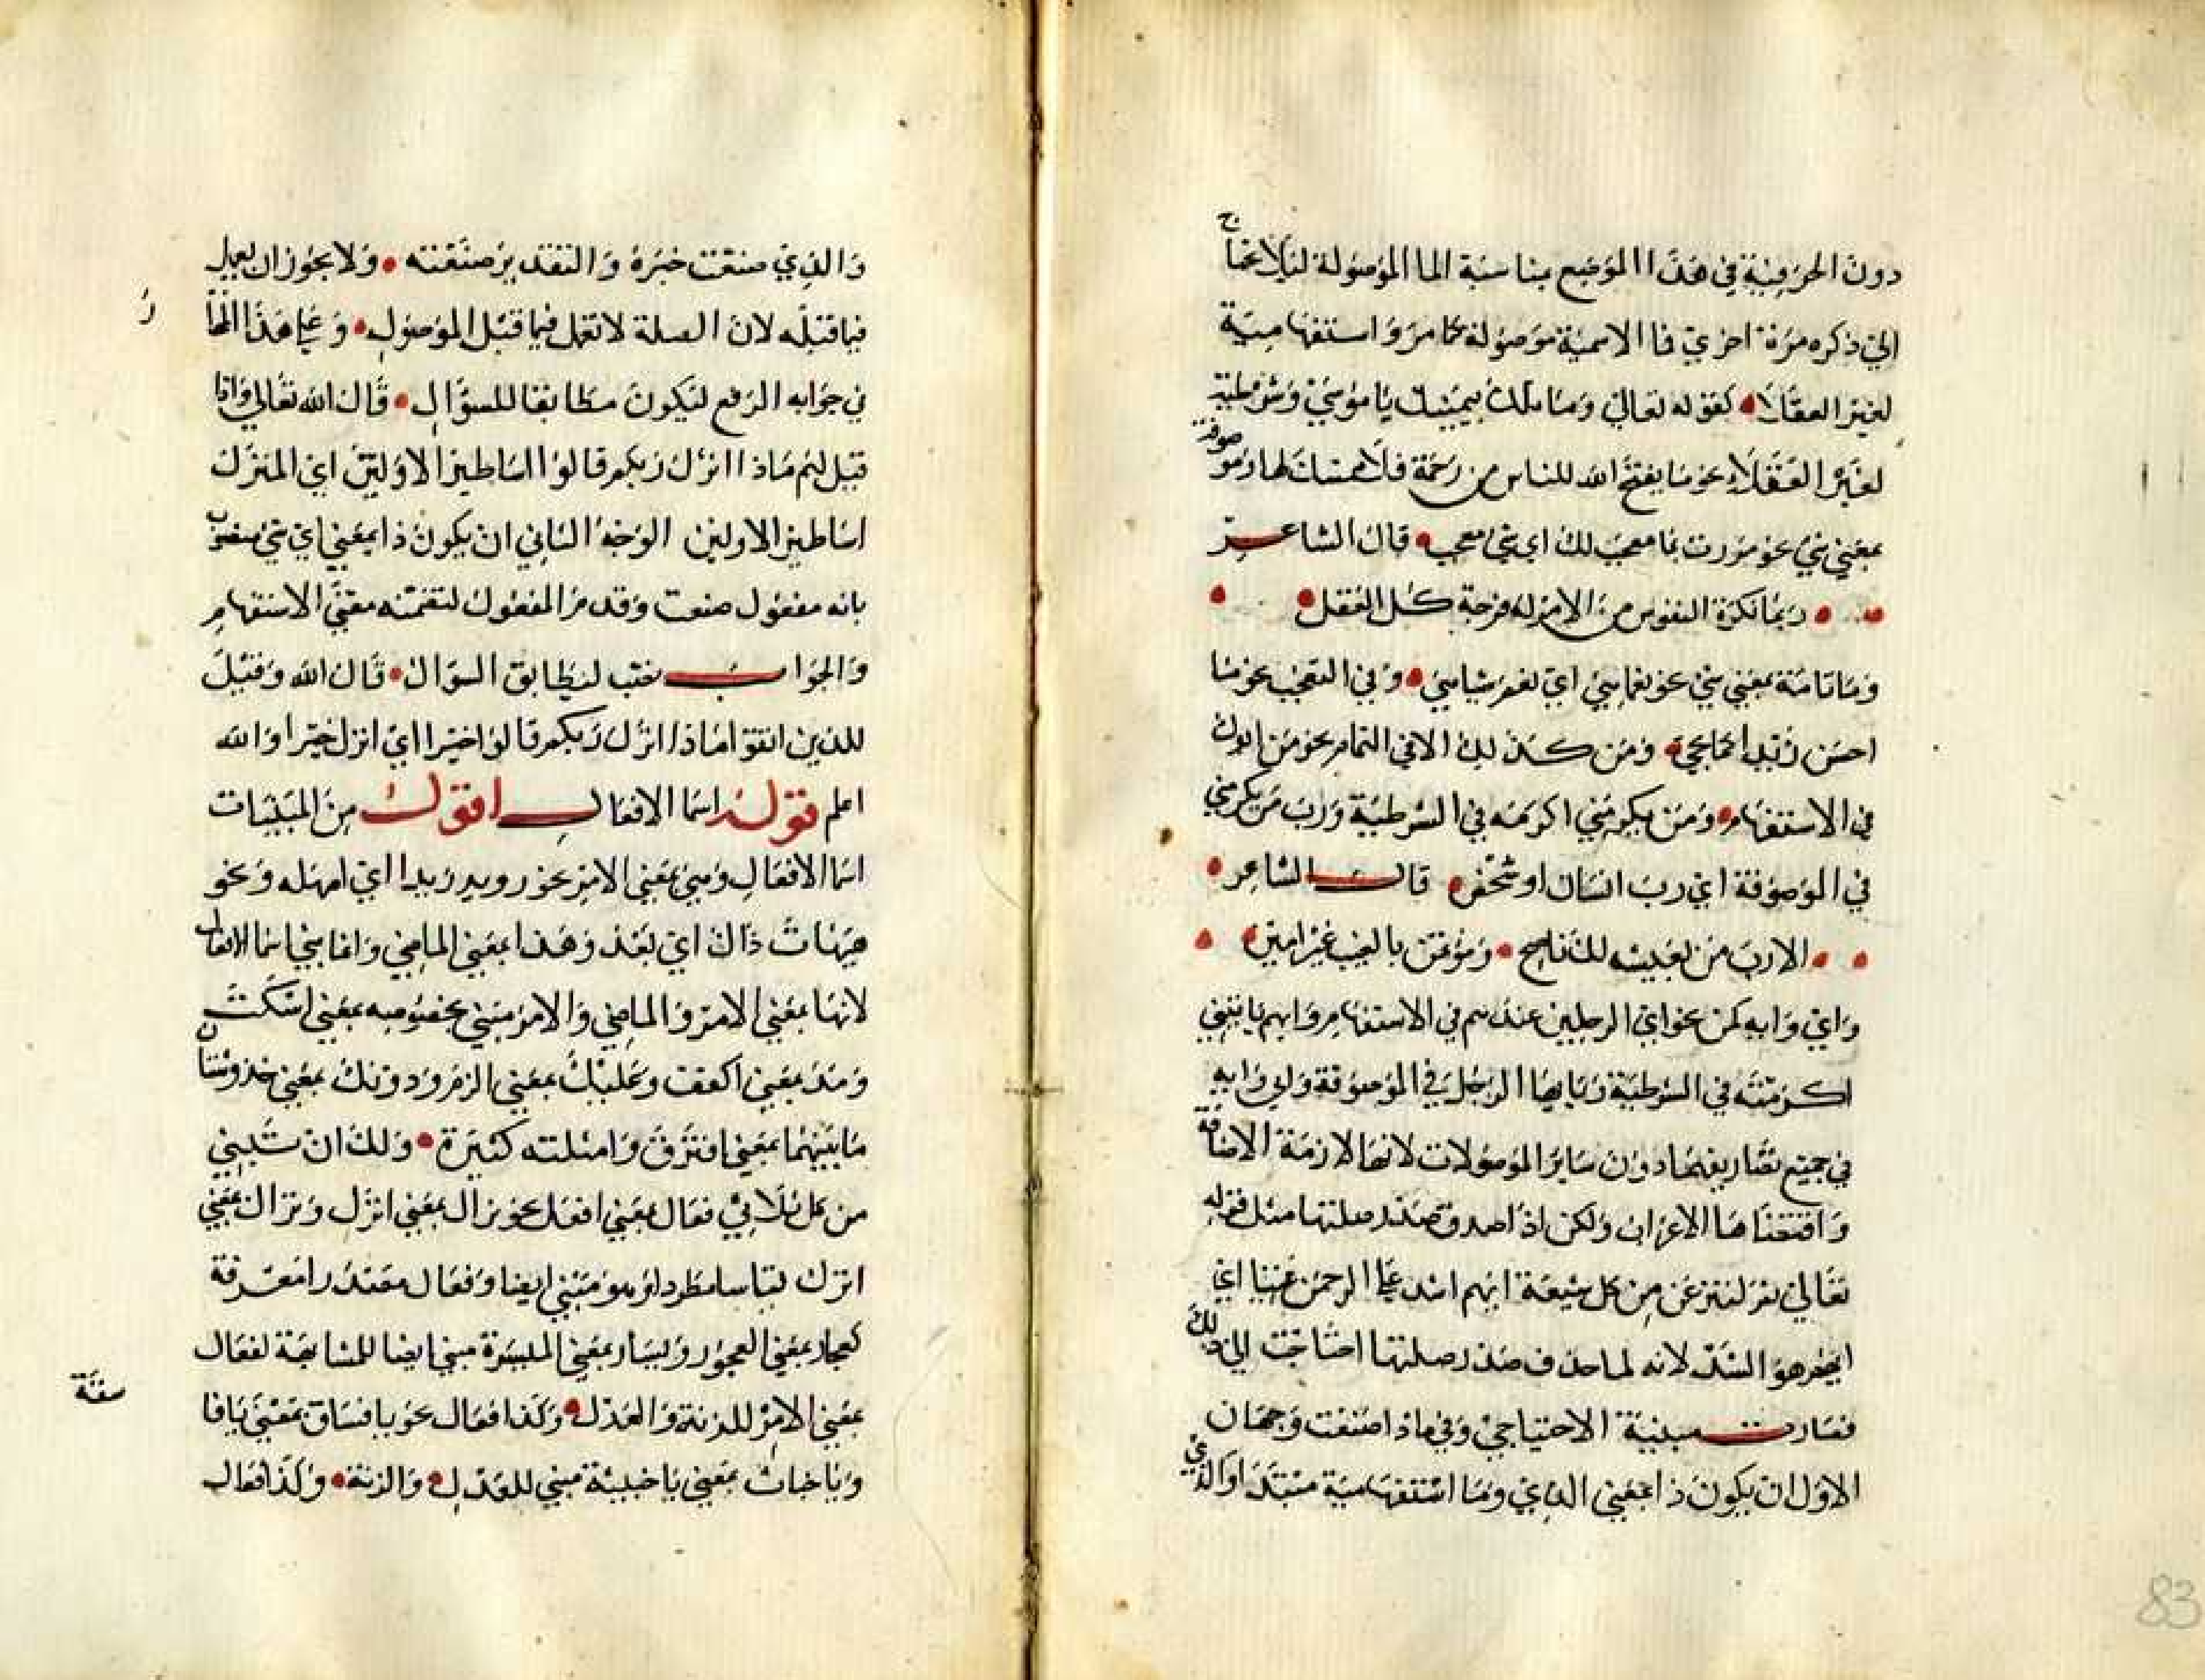 دون الحرفية في هذا الموضع بمناسبة الما الموصولة لئلا يحتاج
الى ذكره مرة اخرى فما الاسمية موصولة كما مر واستفهامية
لغير العقلا كقوله تعالى وما تلك بيمينك يا موسى وشرطية
لغير العقلاء نحو ما يفتح الله للناس من رحمة فلا ممسك لها وموصوفة
بمعنى شئ نحو مررت بما معجب لك اي شئ معجب قال الشاعر
ربما تكره النفوس من الامر له فرجة كحل العقل
وما تامة بمعنى شئ نحو نعما هي اي نعم شيا هي وفي التعجب نحو ما
احسن زيدا كما يجي ومن كذلك الا في التمام نحو من ابوك
في الاستفهام ومن يكرمني اكرمه في الشرطية ورب من يكرمني
في الموصوفة اي رب انسان او شخص قال الشاعر
الا رب من تغتشه لك ناصح ومؤتمن بالغيب غير امين
واي واية كمن نحو اي الرجلين عندهم في الاستفهام وايهم ياتيني
اكرمته في الشرطية ويا ايها الرجل في الموصوفة واي واية
في جميع تصاريفهما دون ساير الموصولات لانها لازمة الاضافة
واقتضاها الاعراب ولكن اذا صدر صلتها مثل قوله
تعالى ثم لننزعن من كل شيعة ايهم اشد على الرحمن عتيا اي
ايهم هو اشد لانه لما حذف صدر صلتها احتاجت الى ذلك
فصارت مبنية الاحتياجي وفي ماذا صنعت وجهان
الاول ان يكون ذا بمعنى الذي وما استفهامية مبتدا والذي
83
والذي صنعت خبره والتقدير صنعته ولا يجوز ان يعمل
فيما قبله لان الصلة لا تعمل فيما قبل الموصول وعلى هذا
في جوابه الرفع ليكون مطابقا للسؤال قال الله تعالى واذا
قيل لهم ماذا انزل ربكم قالوا اساطير الاولين اي المنزل
اساطير الاولين الوجه الثاني ان يكون ذا بمعنى اي شئ منصوب
بانه مفعول صنعت وقدم المفعول لتضمنه معنى الاستفهام
والجواب نصب ليطابق السؤال قال الله وقيل
للذين اتقوا ماذا انزل ربكم قالوا خيرا اي انزل خيرا والله
اعلم قوله اسما الافعال اقول من المبنيات
اسما الافعال وهي بمعنى الامر نحو رويد زيدا اي امهله ونحو
هيهات ذاك اي بعد وهذا بمعنى الماضي وانما بني اسما الافعال
لانها بمعنى الامر والماضي والامر مبني بخصوصه بمعنى اسكت
ومه بمعنى اكفف وعليك بمعنى الزم ودونك بمعنى خذ وشتان
ما بينهما بمعنى افترق وامثلته كثيرة ولك ان تبني
من كل ثلاثي فعال بمعنى افعل نحو نزال بمعنى انزل وتراك بمعنى
اترك قياسا مطردا وهو مبني ايضا وفعال مصدرا معرفة
كفجار بمعنى الفجور وليسار بمعنى الميسرة مبني ايضا للمشابهة لفعال
بمعنى الامر للزنة والعدل وكذا فعال نحو يا فساق بمعنى يا فا
سقة
ويا خباث بمعنى يا خبيثة مبني للعدل والزنة وكذا فعال